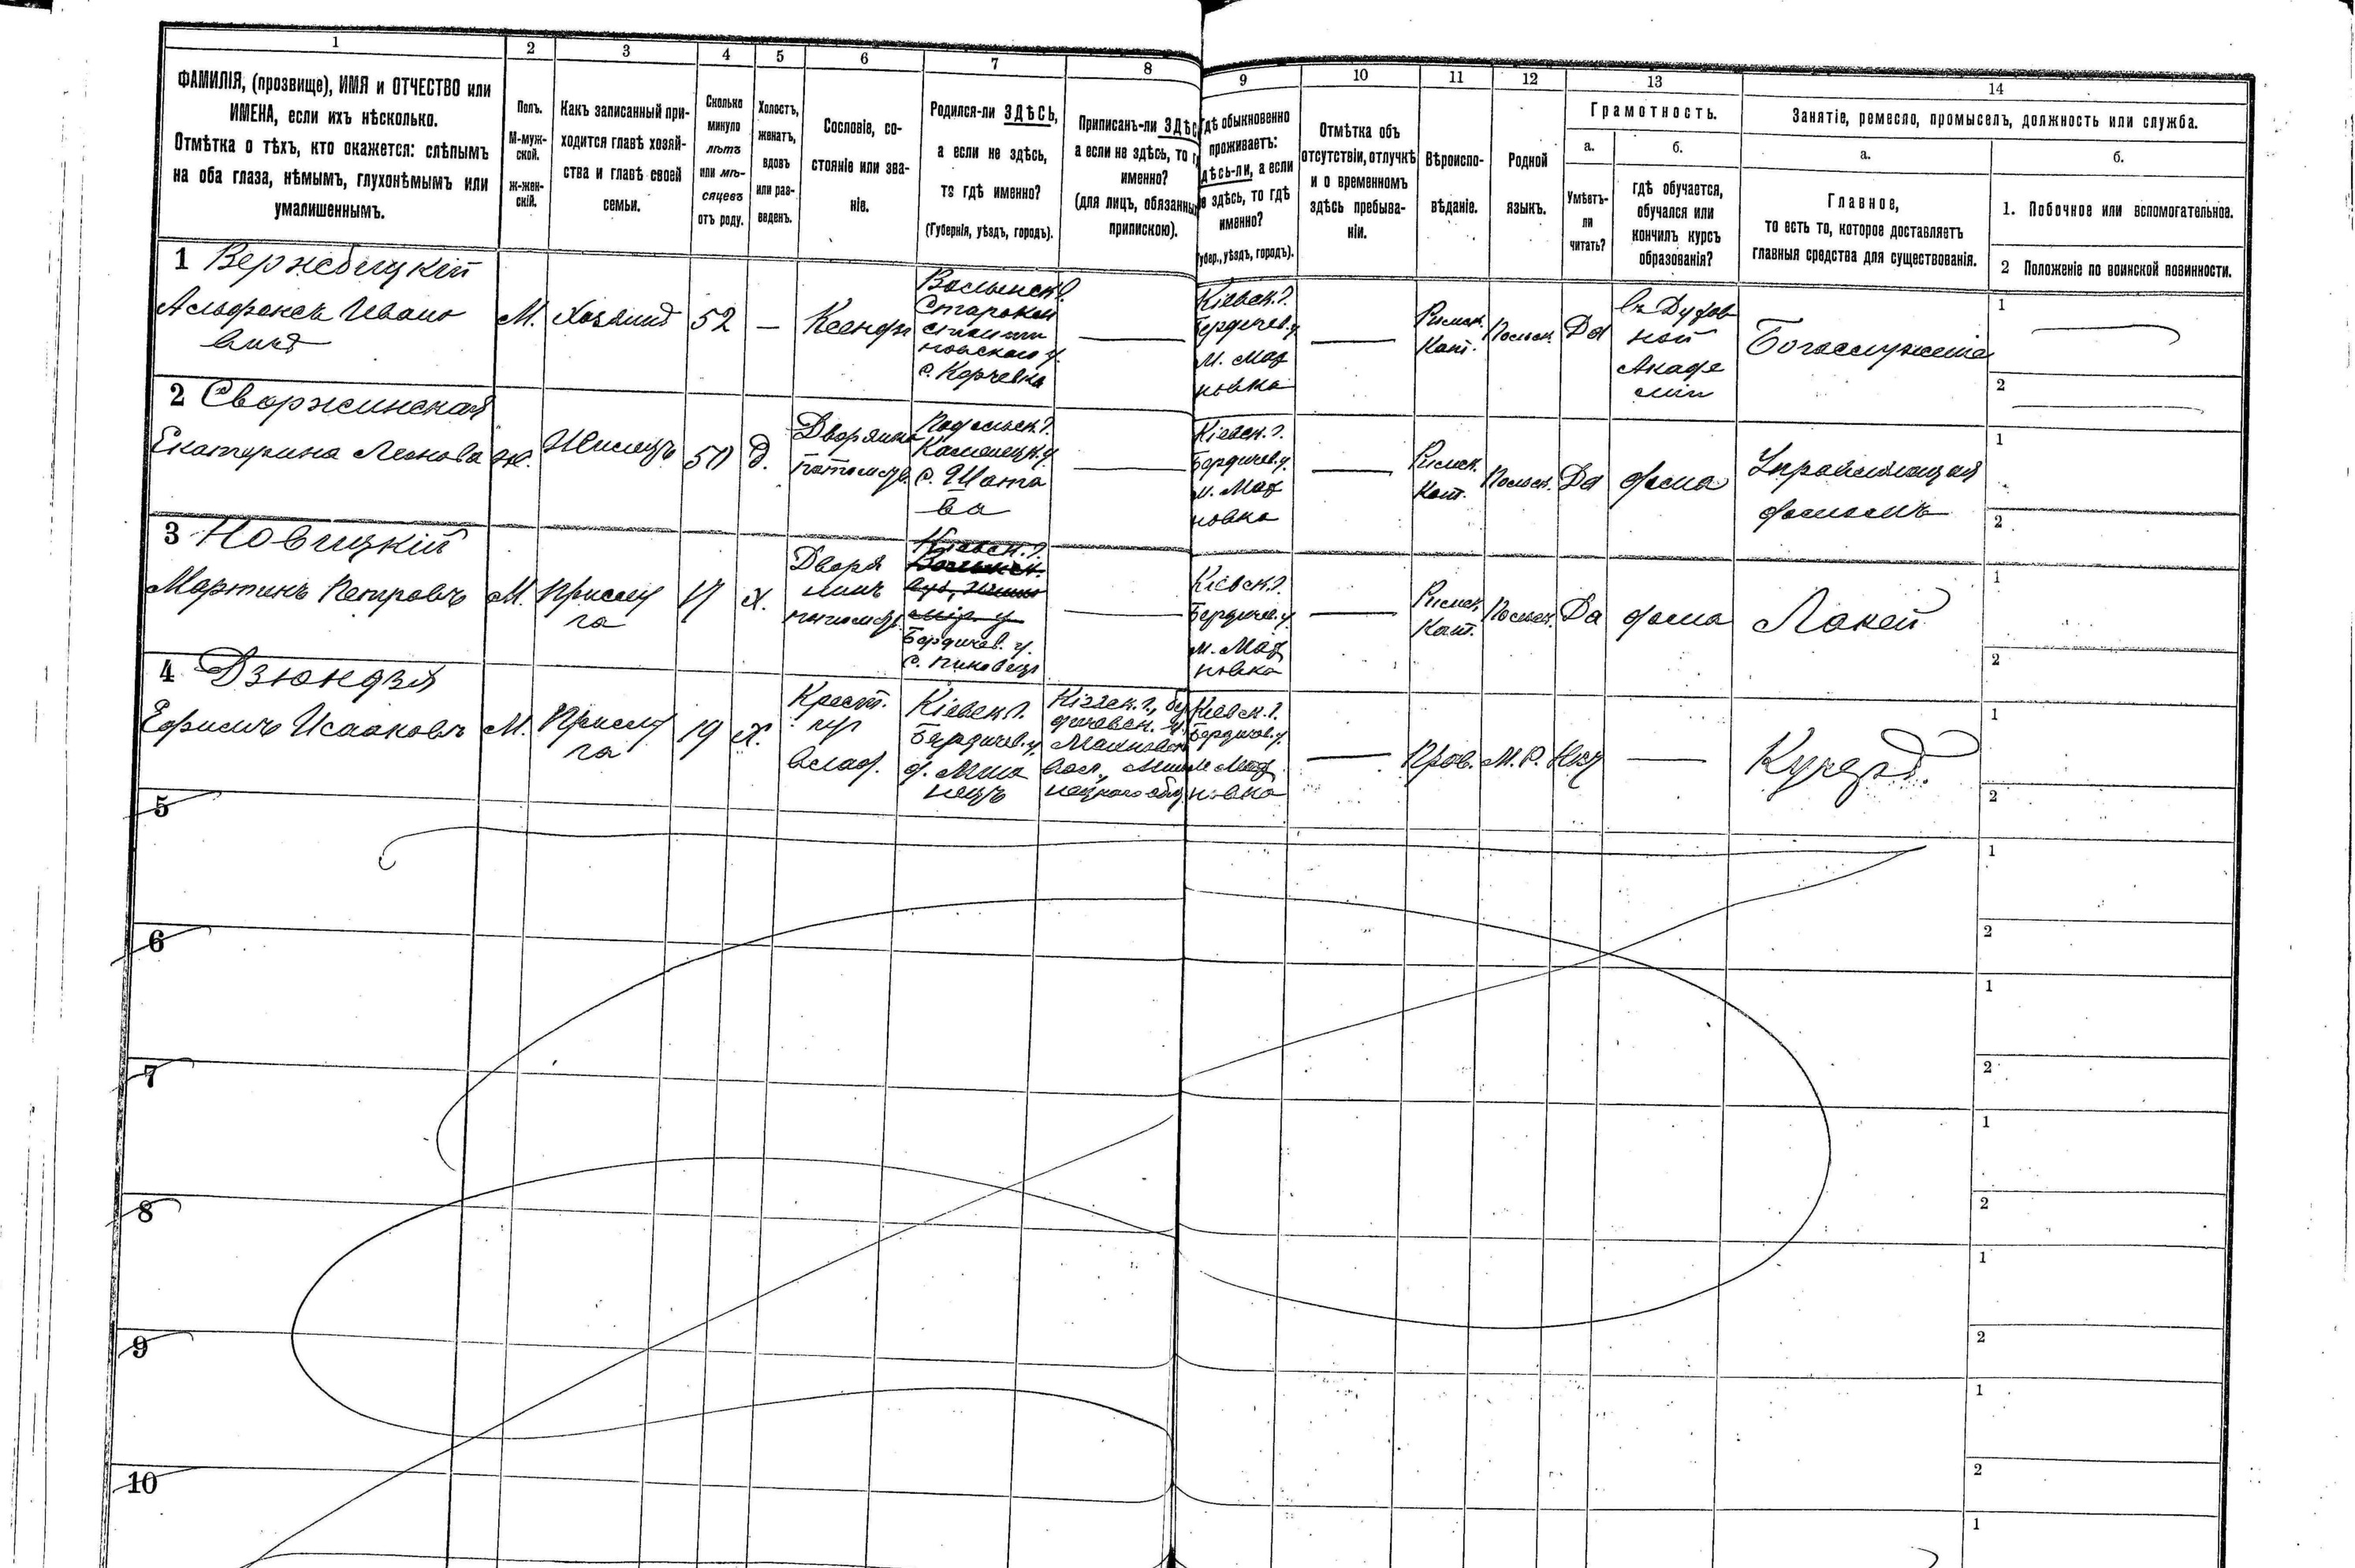 1 2 3 4 5 6 7 8 9 10 11 12 13 14
ФАМИЛІЯ, (прозвище), ИМЯ и ОТЧЕСТВО или
ИМЕНА, если ихъ нѣсколько.
Отмѣтка о тѣхъ, кто окажется: слѣпымъ
на оба глаза, нѣмымъ, глухонѣмымъ или
умалишеннымъ.
Полъ.
М-муж-
ской.
ж-жен-
скій.
Какъ записанный при-
ходится главѣ хозяй-
ства и главѣ своей
семьи.
Сколько
минуло
лѣтъ
или мѣ-
сяцевъ
отъ роду.
Холостъ,
женатъ,
вдовъ
или раз-
веденъ.
Сословіе, со-
стояніе или зва-
ніе.
Родился-ли ЗДѢСЬ,
а если не здѣсь,
то гдѣ именно?
(Губернія, уѣздъ, городъ).
Приписанъ-ли ЗДѢС
а если не здѣсь, то г
именно?
(для лицъ, обязанны
припискою).
Гдѣ обыкновенно
проживаетъ:
дѣсь-ли, а если
е здѣсь, то гдѣ
именно?
Губер., уѣздъ, городъ).
Отмѣтка объ
отсутствіи, отлучкѣ
и о временномъ
здѣсь пребыва-
ніи.
Вѣроиспо-
вѣданіе.
Родной
языкъ.
Грамотность.
а.
Умѣетъ-
ли
читать?
б.
гдѣ обучается,
обучался или
кончилъ курсъ
образованія?
Занятіе, ремесло, промыселъ, должность или служба.
а.
Главное,
то есть то, которое доставляетъ
главныя средства для существованія.
б.
1. Побочное или вспомогательное.
2 Положеніе по воинской повинности.
1 Вержбицкій
Альфонсъ Ивано
вичъ
М.
Хозяинъ
52
—
Ксендзъ
Волынск. г.
Старокон
стантин
новскаго у.
с. Корчевка
—
Кіевск. г.
Бердичев. у
м. Мах
новка
—
Римск.
Кат.
Польск.
Да
въ Духов
ной
Акаде
міи
Богослуженіе
1
2
2 Своржинская
Екатерина Леонова
ж.
50
д.
Дворянка
потомств.
Подольск. г.
Каменецк. у.
с. Шата
ва
—
Кіевск. г.
Бердичев. у
м. Мах
новка
—
Римск.
Кат.
Польск.
Да
дома
Управляющая
домомъ
1
2
3 Новицкій
Мартинъ Петровъ
М.
Прислу
га
17
Х.
Дворя
нинъ
потомств.
Кіевск. г.
Бердичев. у.
—
Кіевск. г.
Бердичев. у
м. Мах
новка
—
Римск.
Кат.
Польск.
Да
дома
Лакей
1
2
4 Дзюндзя
Ефимъ Исааковъ
М.
Прислу
га
19
Х.
Крест.
владѣл.
Кіевск. г.
Бердичев. у.
Кіевск. г., Бер
дичевск. у.
вол.,
Кіевск. г.
Бердичев. у.
м. Мах
новка
—
Прав.
М. Р.
Нѣт
—
Кучеръ.
1
2
5
1
2
6
1
2
7
1
2
8
1
2
9
1
2
10
1